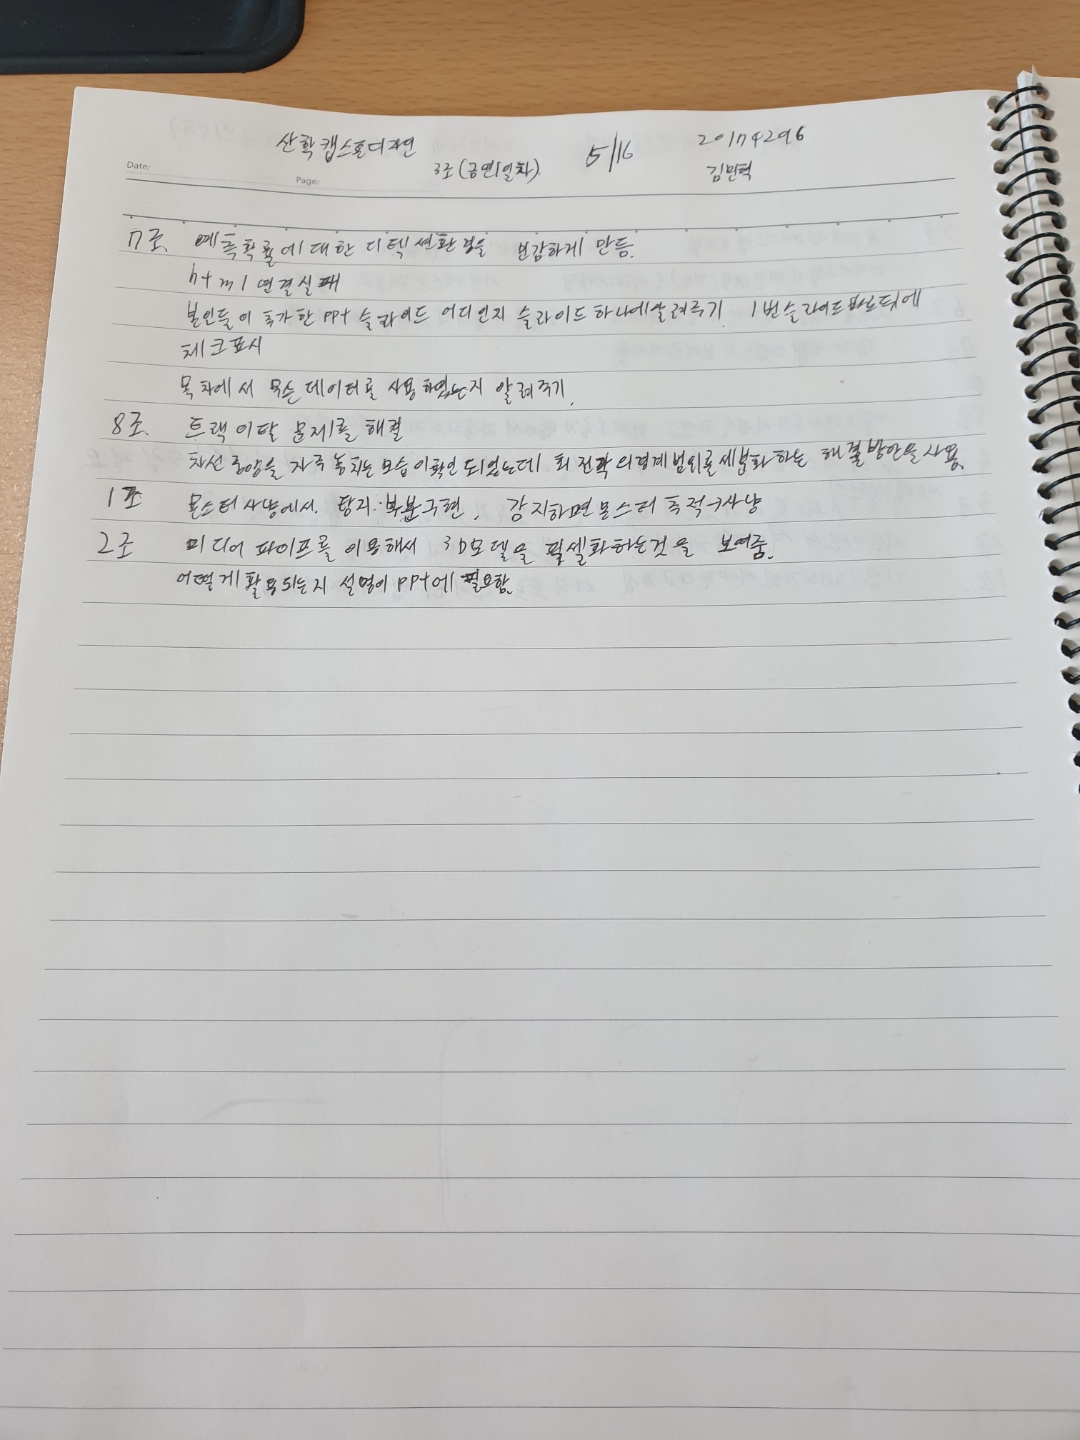 산학캡스톤디자인
3조(금연1일차)
5/16
20174296
김민혁
Date/
Page/
7조. 예측확률에 대한 디텍션환경을 보강하게 만듬.
html 연결실패
본인들이 추가한 ppt 슬라이드 어디인지 슬라이드 하나에 알려주기 1번슬라이드
체크표시
목차에서 무슨 데이터를 사용하였는지 알려주기.
8조. 트랙이탈 문제를 해결
차선중앙을 자꾸 놓치는 모습이 확인되었는데 회전각의 경계범위를 세분화하는 해결방안을 사용.
1조 몬스터사냥에서. 탐지부분구현, 감지하면 몬스터 추적→사냥
2조 미디어 파이프를 이용해서 3D모델을 픽셀화하는것을 보여줌.
어떻게 활용되는지 설명이 ppt에 필요함.